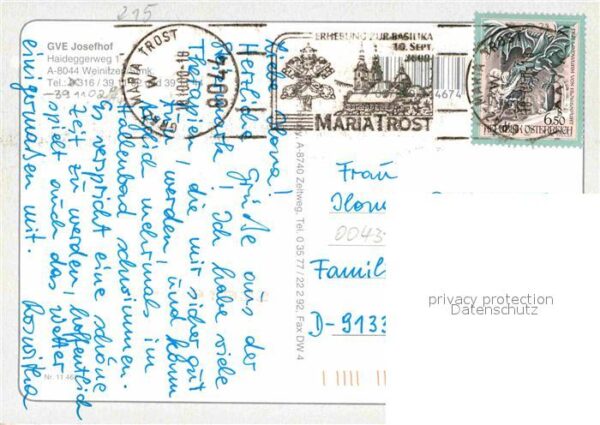 215
GVE Josefhof
Haideggerweg 1
A-8044 Weinitzen
Tel. 0316 / 39
GRAZ MARIA TROST
8044
ERHEBUNG ZUR BASILIKA
10. SEPT.
MARIATROST
4674
6.50
REPUBLIK ÖSTERREICH
Liebe Ilona!
Herzliche Grüße aus der
Steiermark. Ich habe viele
Therapien, die mir sicher gut
tun werden, und kann
täglich mehrmals im
Hallenbad schwimmen.
Es verspricht eine schöne
Zeit zu werden, hoffentlich
spielt auch das Wetter
einigermaßen mit. Roswitha
A-8740 Zeltweg, Tel. 0 35 77 / 22 2 92, Fax DW 4
Frau
Ilon
0043
Famil
D-9133
privacy protection
Datenschutz